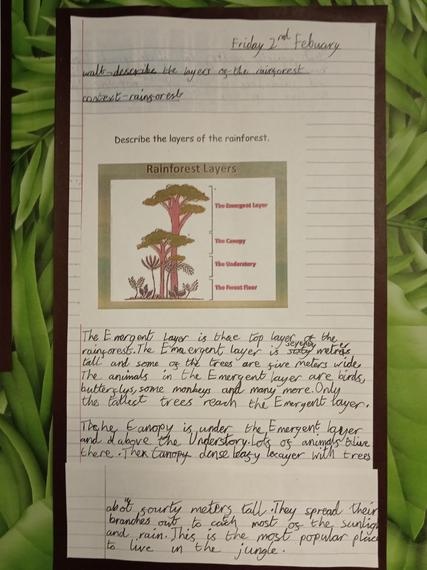 Friday 2nd Febuary
walt-describe the layers of the rainforest
context-rainforests
Describe the layers of the rainforest.
Rainforest Layers
The Emergent Layer
The Canopy
The Understory
The Forest Floor
The Emergent Layer is the top layer of the
rainforest. The Emergent layer is seventy metres
tall and some of the trees are five meters wide.
The animals in the Emergent layer are birds,
butterflys, some monkeys and many more. Only
the tallest trees reach the Emergent layer.
The Canopy is under the Emergent layer
and above the Understory. Lots of animals live
there. The Canopy dense leafy layer with trees
fourty meters tall. They spread their
branches out to catch most of the
and rain. This is the most popular
to live in the jungle.